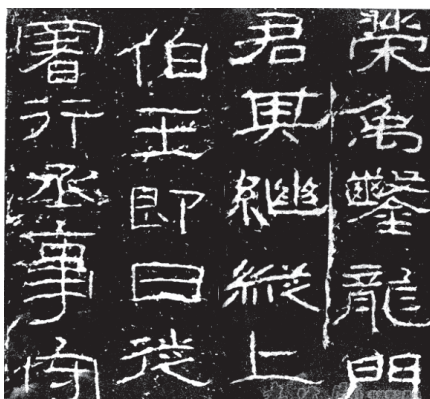 榮禹鑿龍門
君其繼縱上
伯王即日徙
署行丞事守